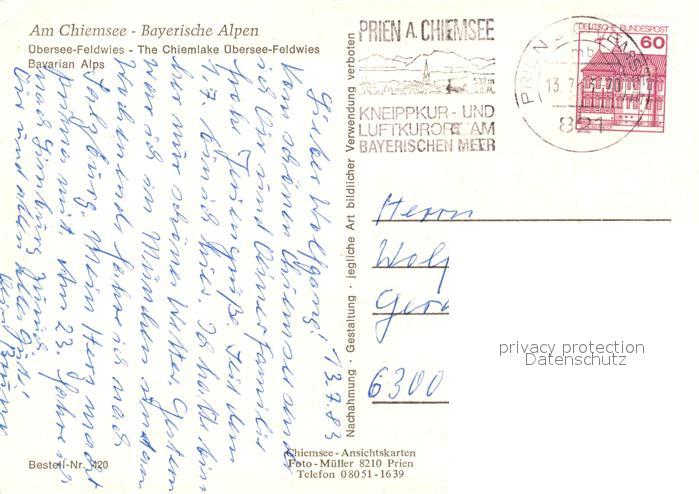 Am Chiemsee - Bayerische Alpen
Übersee-Feldwies - The Chiemlake Übersee-Feldwies
Bavarian Alps
PRIEN A. CHIEMSEE
KNEIPPKUR- UND
LUFTKURORT AM
BAYERISCHEN MEER
PRIEN
13.7.
821
DEUTSCHE BUNDESPOST
60
13.7.83
Lieber Wolfgang!
Vom schönen Chiemsee sende
ich Dir und Deiner Familie
liebe Feriengrüße. Seit dem
7. bin ich hier. Ich hatte bis-
her nur schönes Wetter. Gestern
war ich in München
fahre ich nach
Salzburg. Mein Herz macht
mit. Am 23. fahre ich
nach zurück
Dir und allen
Herrn
Wol
Ger
6300
Nachahmung · Gestaltung · jegliche Art bildlicher Verwendung verboten
privacy protection
Datenschutz
Bestell-Nr. 420
Chiemsee-Ansichtskarten
Foto-Müller 8210 Prien
Telefon 08051-1639